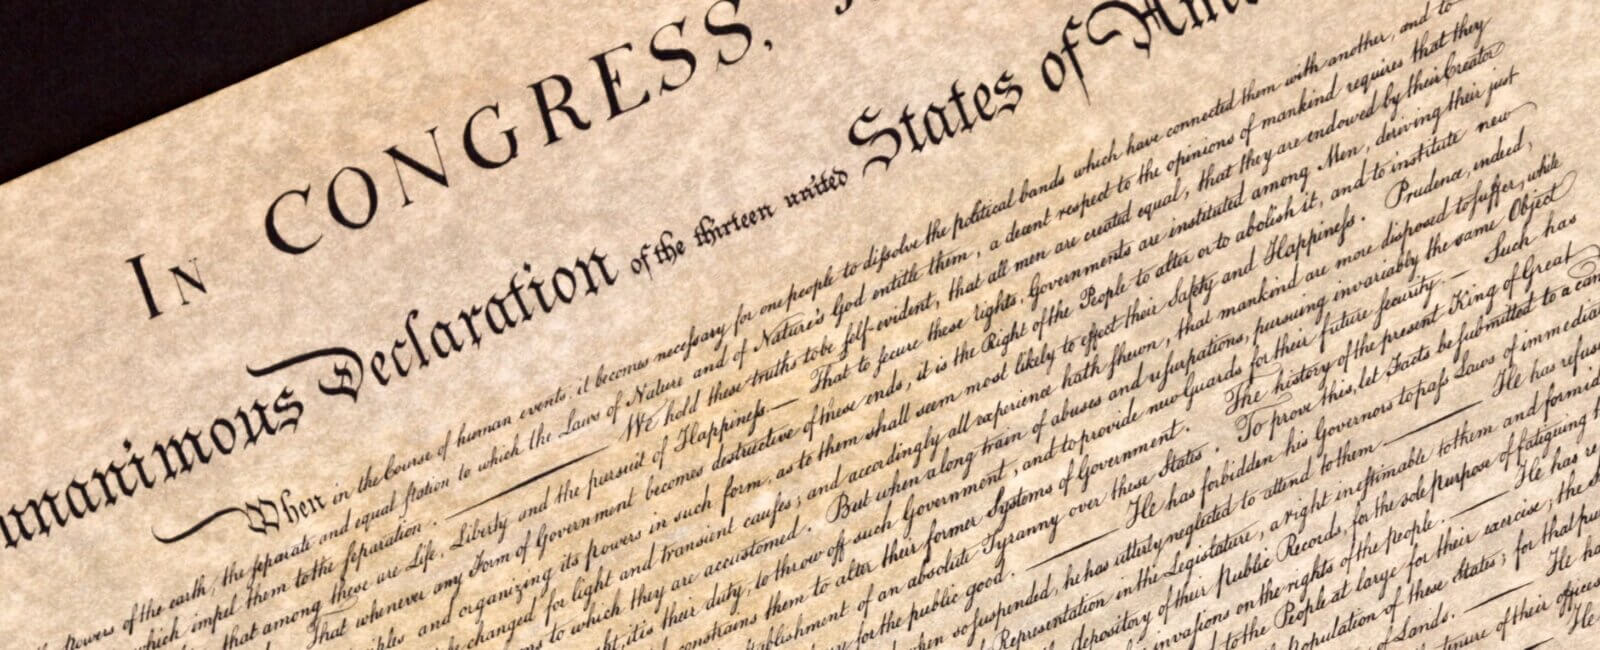 IN CONGRESS,
unanimous Declaration of the thirteen united States of Ame
When in the Course of human events, it becomes neceſsary for one people to diſsolve the political bands which have connected them with another, and to
powers of the earth, the ſeparate and equal ſtation to which the Laws of Nature and of Nature's God entitle them, a decent respect to the opinions of mankind requires that they
which impel them to the ſeparation. — We hold these truths to be ſelf-evident, that all men are created equal, that they are endowed by their Creator
that among these are Life, Liberty and the pursuit of Happineſs.— That to secure these rights, Governments are instituted among Men, deriving their just
That whenever any Form of Government becomes destructive of these ends, it is the Right of the People to alter or to abolish it, and to institute new
ples and organizing its powers in such form, as to them shall seem most likely to effect their Safety and Happineſs. Prudence, indeed,
be changed for light and transient cauſes; and accordingly all experience hath ſhewn, that mankind are more disposed to ſuffer, while
ms to which they are accustomed. But when a long train of abuses and uſurpations, pursuing invariably the same Object
ht, it is their duty, to throw off such Government, and to provide new Guards for their future ſecurity.— Such has
constrains them to alter their former Systems of Government. The history of the present King of Great
stablishment of an absolute Tyranny over these States. To prove this, let Facts be submitted to a can
for the public good. — He has forbidden his Governors to paſs Laws of immedia
when so ſuspended, he has utterly neglected to attend to them — He has refuse
Representation in the Legislature, a right ineſtimable to them and formid
depository of their Public Records, for the sole purpose of fatiguing
invaſions on the rights of the people. — He has re
to the People at large for their exercise; the S
Population of these States; for that pu
of Lands. — He ha
tenure of their offices
He